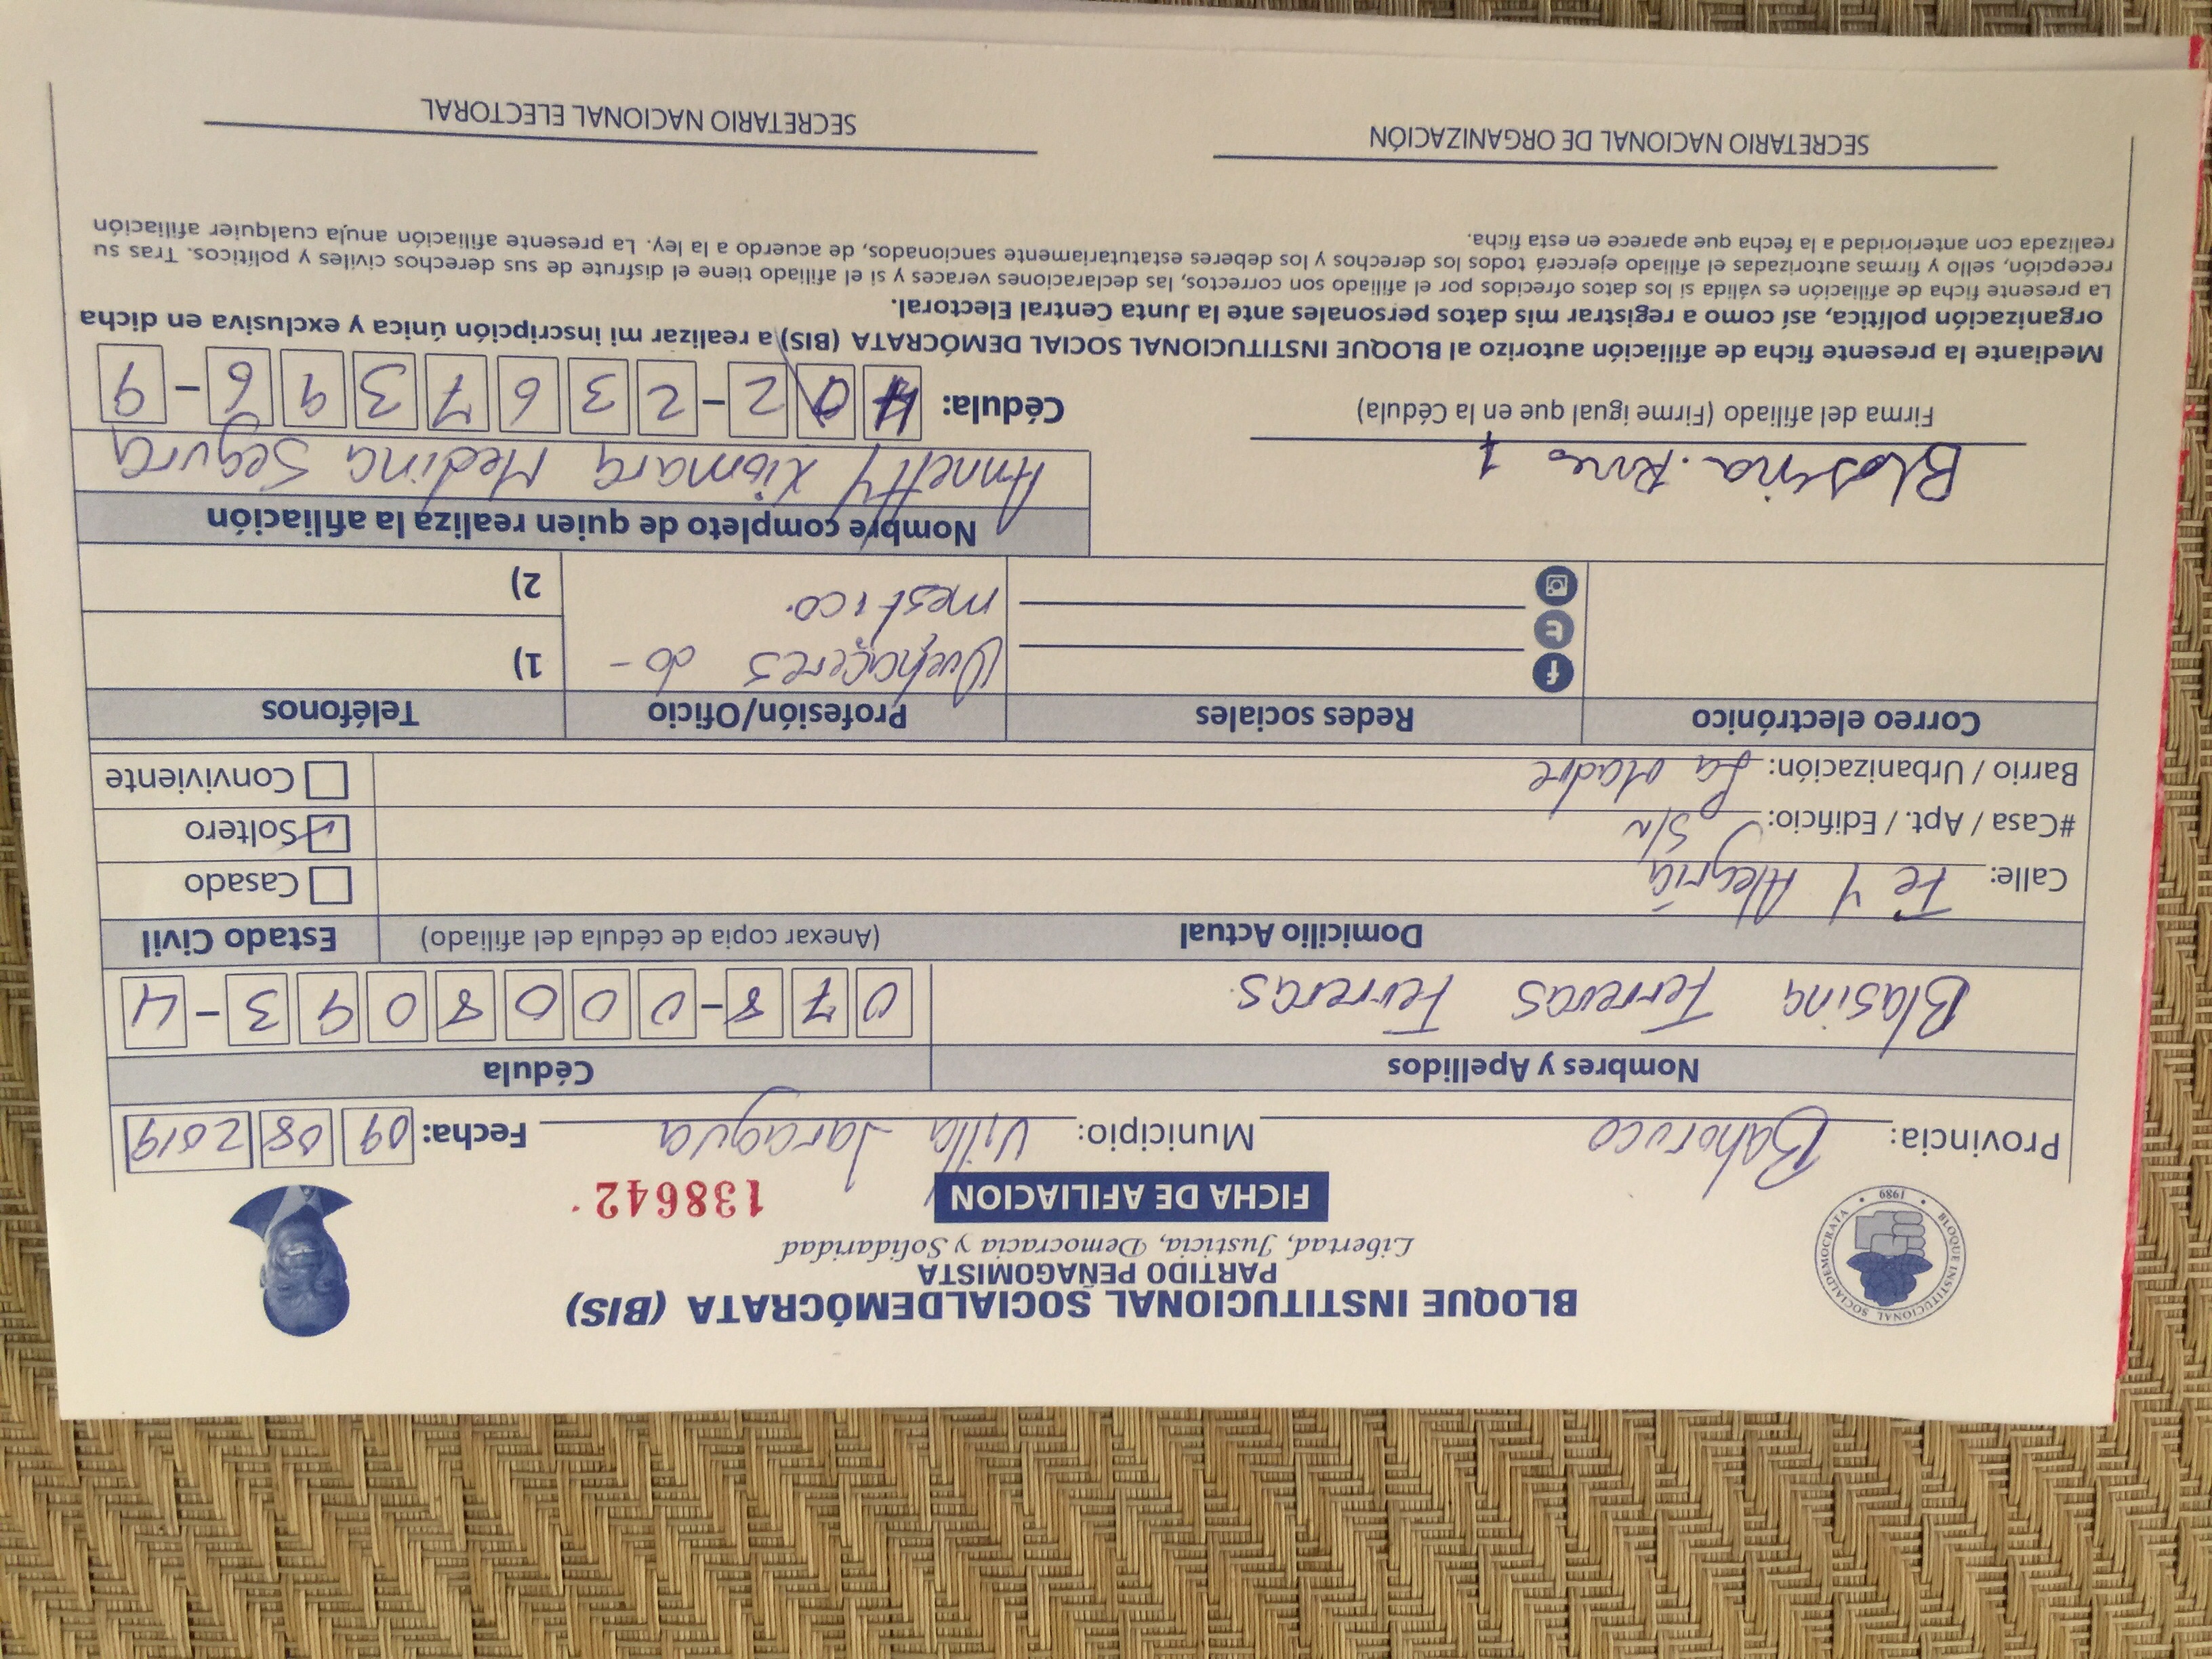 BLOQUE INSTITUCIONAL SOCIALDEMÓCRATA (BIS)
PARTIDO PEÑAGOMISTA
Libertad, Justicia, Democracia y Solidaridad
BLOQUE INSTITUCIONAL SOCIALDEMOCRATA • 1989 •
FICHA DE AFILIACION 138642
Provincia: Bahoruco Municipio: Villa Jaragua Fecha: 09 08 2019
Nombres y Apellidos Cédula
Blasina Ferreras Ferreras 078-0008093-4
Domicilio Actual (Anexar copia de cédula del afiliado) Estado Civil
Calle: Fe Y Alegría Casado
#Casa / Apt. / Edificio: S/N Soltero
Barrio / Urbanización: La Madre Conviviente
Correo electrónico Redes sociales Profesión/Oficio Teléfonos
Quehaceres do- 1)
mestico. 2)
Nombre completo de quien realiza la afiliación
Blasina
Annetty Xiomara Medina Segura
Firma del afiliado (Firme igual que en la Cédula) Cédula: 402-2367396-9
Mediante la presente ficha de afiliación autorizo al BLOQUE INSTITUCIONAL SOCIAL DEMÓCRATA (BIS) a realizar mi inscripción única y exclusiva en dicha
organización política, así como a registrar mis datos personales ante la Junta Central Electoral.
La presente ficha de afiliación es válida si los datos ofrecidos por el afiliado son correctos, las declaraciones veraces y si el afiliado tiene el disfrute de sus derechos civiles y políticos. Tras su
recepción, sello y firmas autorizadas el afiliado ejercerá todos los derechos y los deberes estatutariamente sancionados, de acuerdo a la ley. La presente afiliación anula cualquier afiliación
realizada con anterioridad a la fecha que aparece en esta ficha.
SECRETARIO NACIONAL DE ORGANIZACIÓN SECRETARIO NACIONAL ELECTORAL